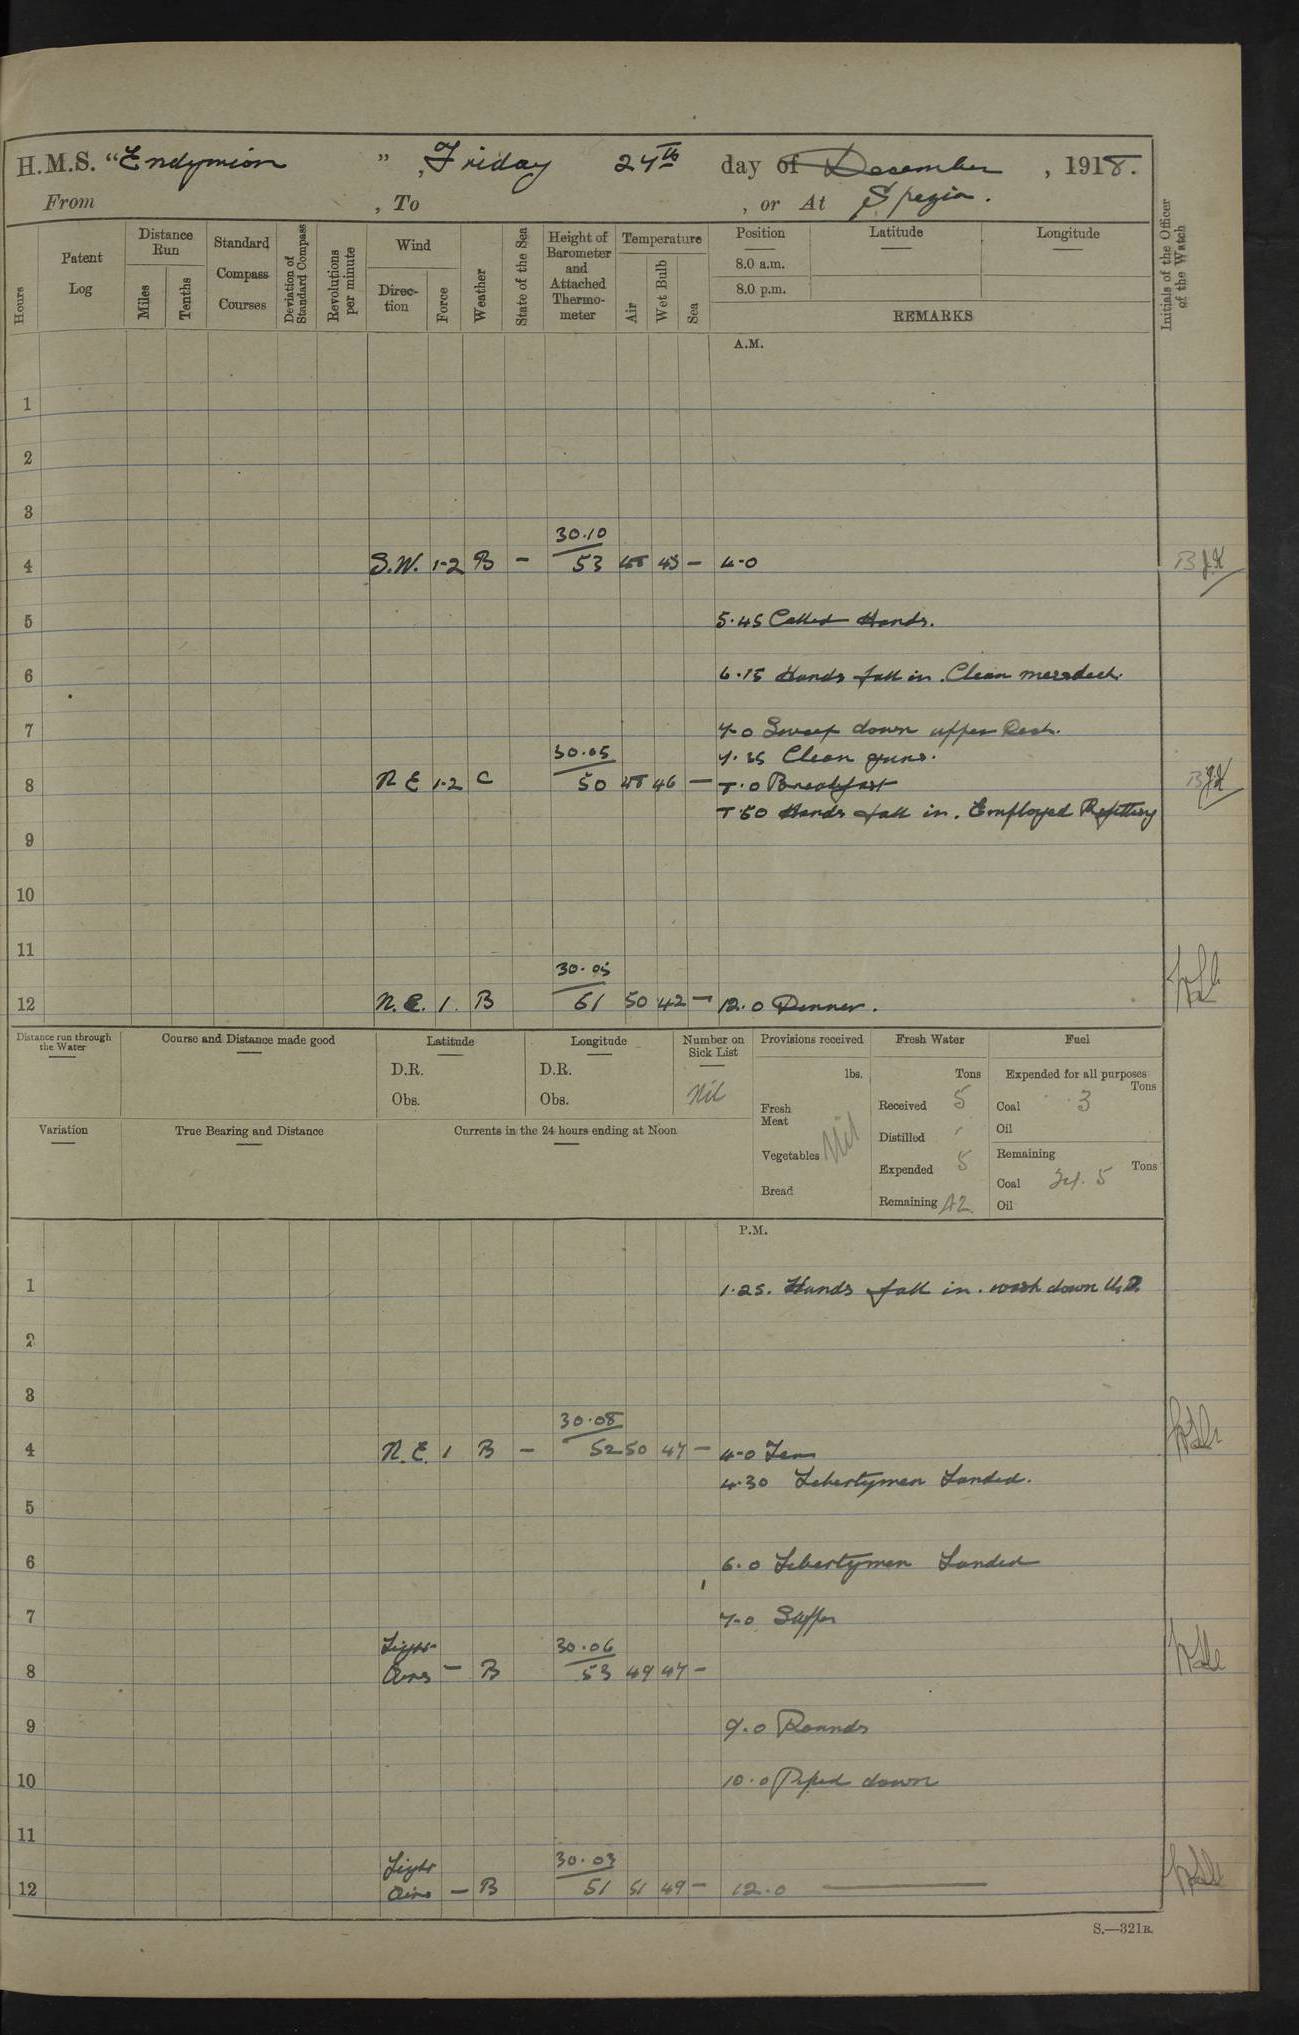 H.M.S. "Endymion", Friday 27th day of December, 1918.
From , To , or At Spezia.
Hours
Patent Log
Distance Run
Miles
Tenths
Standard Compass Courses
Deviation of Standard Compass
Revolutions per minute
Wind
Direction
Force
Weather
State of the Sea
Height of Barometer and Attached Thermometer
Temperature
Air
Wet Bulb
Sea
Position
8.0 a.m.
8.0 p.m.
Latitude
Longitude
REMARKS
Initials of the Officer of the Watch
A.M.
1
2
3
30.10
4 S.W. 1-2 B - 53 48 - 4-0
5 5.45 Called Hands.
6 6.15 Hands fall in. Clean messdeck.
7 7-0 Sweep down upper Deck.
30.05 7.35 Clean guns.
8 N E 1-2 C 50 48 46 - 8.0 Breakfast
8.50 Hands fall in. Employed Refitting
9
10
11
30.05
12 N.E. 1. B 61 50 42 - 12.0 Dinner.
Distance run through the Water
Course and Distance made good
Latitude
D.R.
Obs.
Longitude
D.R.
Obs.
Number on Sick List
Nil
Provisions received
lbs.
Fresh Meat
Vegetables Nil
Bread
Fresh Water
Tons
Received 5
Distilled
Expended 5
Remaining 42
Fuel
Expended for all purposes
Tons
Coal 3
Oil
Remaining
Tons
Coal
Oil
Variation
True Bearing and Distance
Currents in the 24 hours ending at Noon
P.M.
1 1.25. Hands fall in. wash down U.D.
2
3
30.08
4 N.E. 1 B - 52 50 47 - 4-0 Tea
4.30 Libertymen Landed.
5
6 6.0 Libertymen Landed
7 7-0 Supper
Light 30.06
8 Airs - B 53 49 47 -
9 9.0 Rounds
10 10.0 Piped down
11
Light 30.03
12 Airs - B 51 51 49 - 12.0
S.—321B.